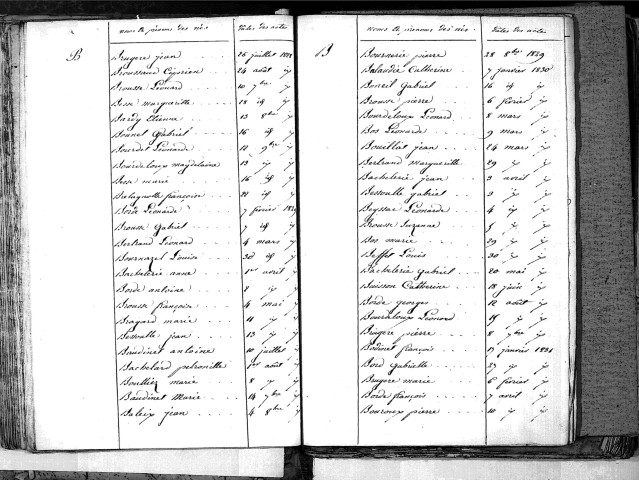 noms & prénoms des nés. dates des actes
B
Bruyere jean 26 juillet 1828
Broussouse Cyprien 24 août id
Brousse Léonard 10 7bre id
Besse marguerite 18 id id
Bardy Etienne 13 8bre id
Bonnet Gabriel 16 id id
Bourdet Léonarde 12 9bre id
Bourdeloux magdelaine 13 id
Besse marie 16 id id
Balagnotte françoise 21 id id
Borde Léonarde 7 février 1829
Brousse Gabriel 7 id id
Bertrand Léonard 4 mars id
Bournazel Louise 30 id id
Bachelerie anne 1er avril id
Borde antoine 2 id id
Brousse françoise 4 mai id
Brayard marie 11 id id
Bessoulle jean 13 id id
Baudinet antoine 10 juillet id
Bachelard petronille 1er août id
Boullier marie 8 id id
Baudinet Marie 14 7bre id
Baleix jean 4 8bre id
noms & prénoms des nés. dates des actes
B
Bournerie pierre 28 8bre 1829
Balandie Catherine 7 janvier 1830
Bonzit Gabriel 16 id id
Brousse pierre 6 février id
Bourdeloux Léonard 8 mars id
Bos Léonarde 9 mars id
Bouillat jean 24 mars id
Bertrand Marguerite 29 id id
Bachelerie jean 3 avril id
Bessoulle gabriel 3 id id
Beyssac Léonarde 4 id id
Brousse Suzanne 5 id id
Bos marie 29 id id
Beffet Louis 30 id id
Bachelerie Gabriel 20 mai id
Buisson Catherine 18 juin id
Borde georges 12 août id
Bourdeloux Léonard 15 id id
Bruyere pierre 8 7bre id
Bodinet françois 17 janvier 1831
Bord Gabrielle 27 id id
Bruyere marie 6 février id
Borde françois 7 avril id
Bournoux pierre 10 id id